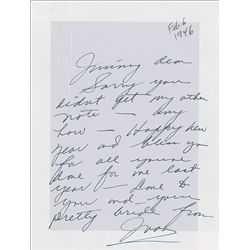 Feb. 6
1946
Jimmy dear
Sorry you
didn't get my other
note — any
how — Happy New
year and bless you
for all you've
done for me last
year — Love to
you and your
pretty bride from
Joan